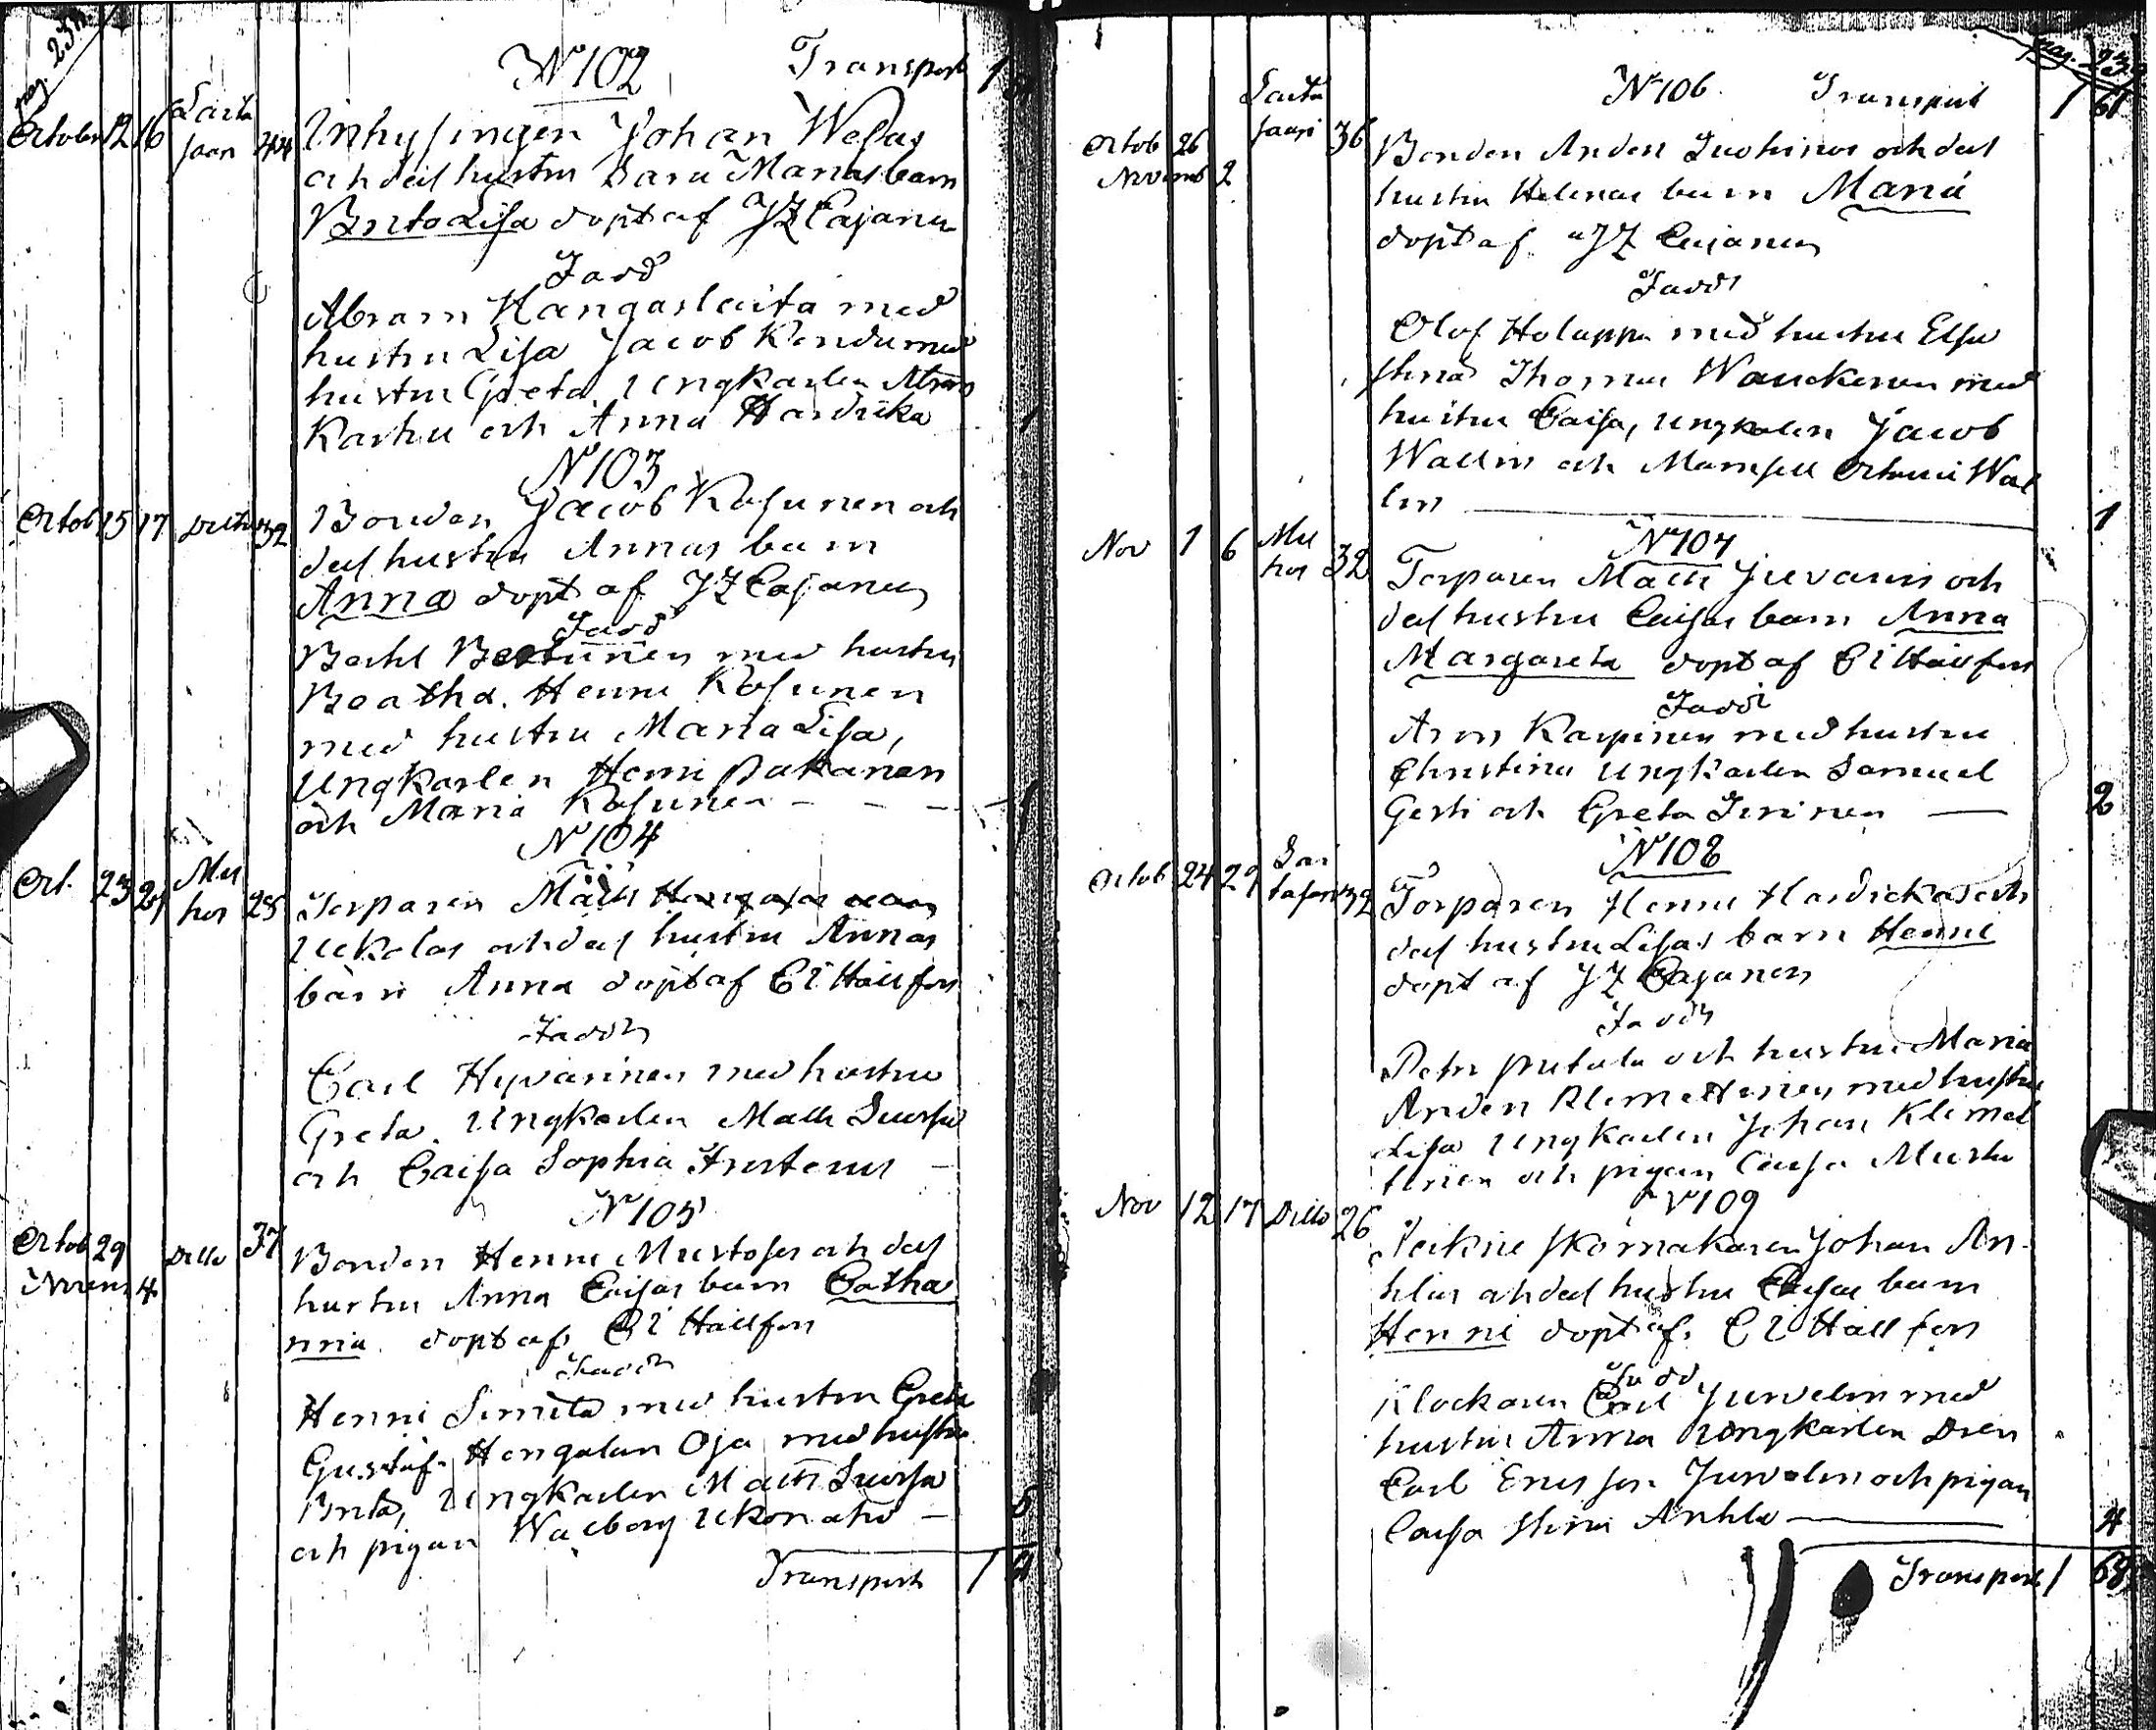 pag. 238
N 102 Transport 1
October 12 16 Saita
saari 44 Inhysingen Johan Welas
och dess hustru Sara Marias barn
Brita Lisa döpt af JZ Cajanus
Fadd
Abram Kangaslaita med
hustru Lisa Jacob Kendu med
hustru Greta. Ungkarlen Abram
Karhu och Anna Hardika 1
N 103
Octob 15 17 Ditto 32 Bonden Jacob Kosunen och
dess hustru Annas barn
Anna döpt af JZ Cajanus
Fadd
Bertil Bertunen med hustru
Beatha. Henric Kosunen
med hustru Maria Lisa,
Ungkarlen Henric Pukanen
och Maria Kosunen - - - 1
N 104
Oct. 23 29 Mu
hos 28 Torparen Matts
Uckolas och dess hustru Annas
barn Anna döpt af C L Hällfors
Faddr
Carl Hyvärinen med hustru
Greta. Ungkarlen Matts Suorsa
och Caisa Sophia Frosterus -
N 105
Octob 29
Novem 4 Ditto 37 Bonden Henric Mustoses och dess
hustru Anna Caisas barn Catha
rina döpt af C L Hällfors
Faddr
Henric Similä med hustru Greta
Gustaf Hengalan Oja med hustru
Brita, Ungkarlen Matts Suorsa
och pigan Walborg Ukonaho - 5
Transport 1 61
pag. 239
N 106. Transport 1 61
Octob 26
Novemb 2 Saita
saari 36 Bonden Anders Juohinos och dess
hustru Helenas barn Maria
döpt af JZ Cajanus
Faddr
Olof Holappa med hustru Elsa
Stina Thomas Wanckonen med
hustru Caisa, Ungkarlen Jacob
Wallin och Mamsell Octavia Wal
lin 1
N 107
Nov 1 6 Mu
hos 32 Torparen Matts Juvanis och
dess hustru Caisas barn Anna
Margareta döpt af C L Hällfors
Faddr
Aron Karpinen med hustru
Christina Ungkarlen Samuel
Gerti och Greta Iivinen 2
N 108
Octob 24 29 Sai
tasari 32 Torparen Henric Hardickas och
dess hustru Lisas barn Henric
döpt af JZ Cajanus
Faddr
Petr Pietola och hustru Maria
Anders Klemettinen med hustru
Lisa Ungkarlen Johan Klemet
tinen och pigan Caisa Mustu
N 109
Nov 12 17 Ditto 26 Sockne skomakaren Johan An
hlas och dess hustru Caisas barn
Henric döpt af. C L Hällfors
Fadd
Klockaren Carl Jurvelin med
hustru Anna Ungkarlen Dren
Carl Ericsson Jurvelin och pigan
Caisa Stina Anhla 4
Transport 1 68